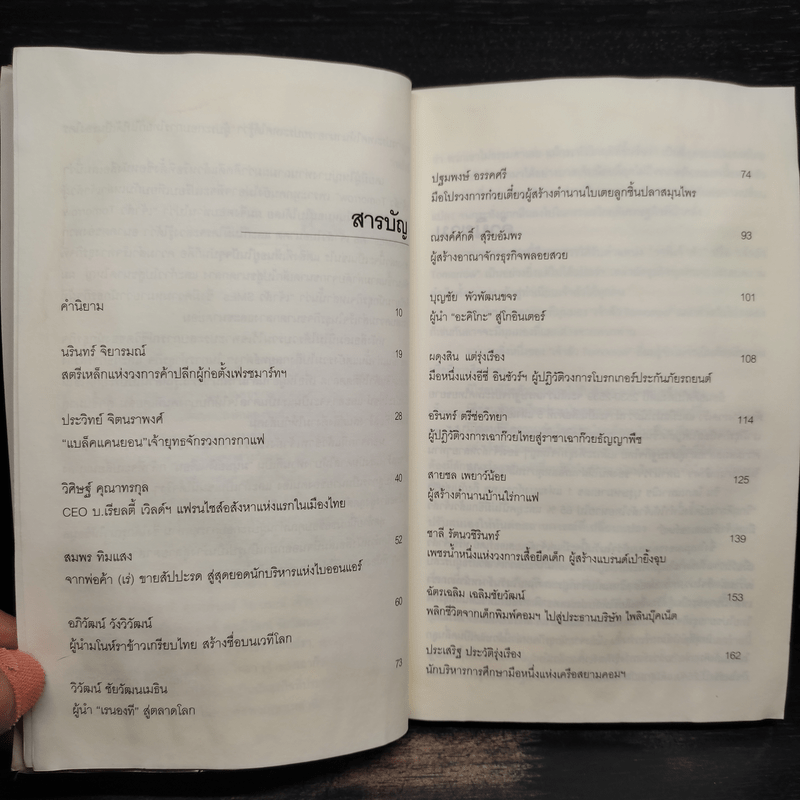 สารบัญ
คำนิยาม 10
นรินทร์ จิยารมณ์ 19
สตรีเหล็กแห่งวงการค้าปลีกผู้ก่อตั้งเฟรชมาร์ทฯ
ประวิทย์ จิตนราพงศ์ 28
"แบล็คแคนยอน"เจ้ายุทธจักรวงการกาแฟ
วิศิษฐ์ คุณาทรกุล 40
CEO บ.เรียลตี้ เวิลด์ฯ แฟรนไชส์อสังหาแห่งแรกในเมืองไทย
สมพร ทิมแสง 52
จากพ่อค้า (เร่) ขายสัปปะรด สู่สุดยอดนักบริหารแห่งไบออนแอร์
อภิวัฒน์ วังวิวัฒน์ 60
ผู้นำมโนห์ราข้าวเกรียบไทย สร้างชื่อบนเวทีโลก
วิวัฒน์ ชัยวัฒนเมธิน 73
ผู้นำ "เรนองที" สู่ตลาดโลก
ปฐมพงษ์ อรรคศรี 74
มือโปรวงการก๋วยเตี๋ยวผู้สร้างตำนานใบเตยลูกชิ้นปลาสมุนไพร
ณรงค์ศักดิ์ สุริยอัมพร 93
ผู้สร้างอาณาจักรธุรกิจพลอยสวย
บุญชัย พัวพัฒนขจร 101
ผู้นำ "อะคิโกะ" สู่โกอินเตอร์
ผดุงสิน แต่รุ่งเรือง 108
มือหนึ่งแห่งอีซี่ อินชัวร์ฯ ผู้ปฏิวัติวงการโบรกเกอร์ประกันภัยรถยนต์
อรินทร์ ตรีช่อวิทยา 114
ผู้ปฏิวัติวงการเฉาก๊วยไทยสู่ราชาเฉาก๊วยธัญญาพืช
สายชล เพยาว์น้อย 125
ผู้สร้างตำนานบ้านใร่กาแฟ
ชาลี รัตนวชิรินทร์ 139
เพชรน้ำหนึ่งแห่งวงการเสื้อยืดเด็ก ผู้สร้างแบรนด์เป่ายิ้งฉุบ
ฉัตรเฉลิม เฉลิมชัยวัฒน์ 153
พลิกชีวิตจากเด็กพิมพ์คอมฯ ไปสู่ประธานบริษัท ไพลินบุ๊คเน็ต
ประเสริฐ ประวัติรุ่งเรือง 162
นักบริหารการศึกษามือหนึ่งแห่งเครือสยามคอมฯ